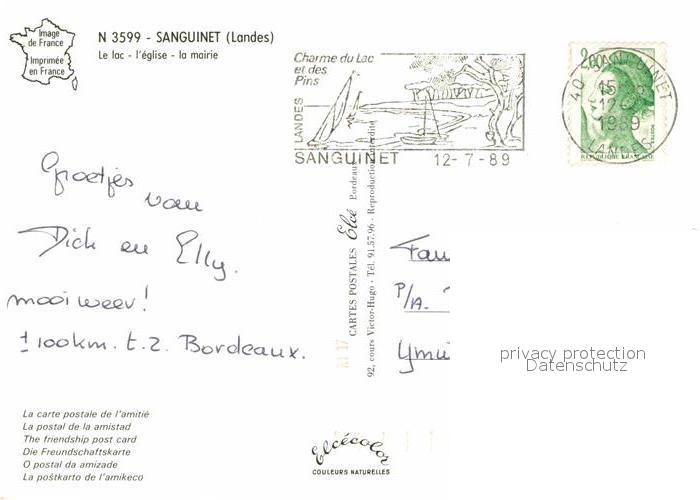 Image
de France
Imprimée
en France
N 3599 - SANGUINET (Landes)
Le lac - l'église - la mairie
Charme du Lac
et des
Pins
LANDES
SANGUINET 12-7-89
40 SANGUINET
15 H
12-7
1989
LANDES
2,00
REPUBLIQUE FRANÇAISE
Groetjes
van
Dick en Elly.
mooi weer!
± 100km. t.z. Bordeaux.
CARTES POSTALES Elcé Bordeaux
92, cours Victor-Hugo - Tél. 91.57.96 - Reproduction interdite
Fau
P/A.
Ymui
privacy protection
Datenschutz
La carte postale de l'amitié
La postal de la amistad
The friendship post card
Die Freundschaftskarte
O postal da amizade
La poŝtkarto de l'amikeco
Elcécolor
COULEURS NATURELLES